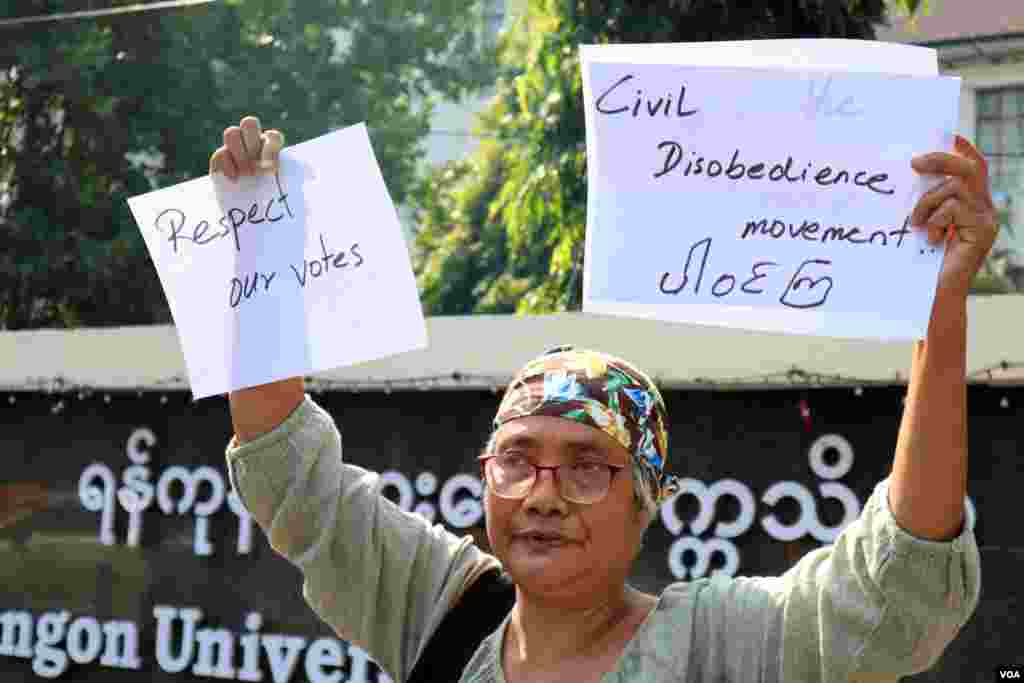 Respect
our votes
Civil the
Disobedience
movement..
ပါဝင်ကြ
ရန်ကုန်
တက္ကသိုလ်
ngon Univer
VOA